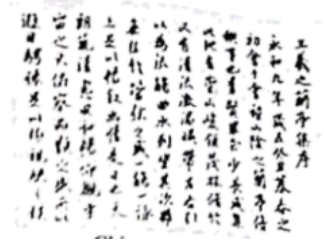 王羲之蘭亭集序
永和九年歲在癸丑暮春之
初會于會稽山陰之蘭亭脩
禊事也羣賢畢至少長咸集
此地有崇山峻領茂林脩竹
又有清流激湍帶左右引
以為流觴曲水列坐其次雖
無絲竹管弦之盛一觴一詠
足以暢叙幽情是日也天
朗氣清惠風和暢仰觀宇
宙之大俯察品類之盛所以
遊目騁懷足以極視聽之